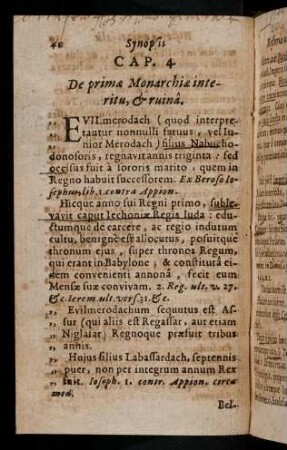 40 Synopsis
CAP. 4
De primæ Monarchiæ inte-
ritu, & ruinâ.
„ EVILmerodach (quod interpre-
„ tantur nonnulli fatuus, vel Iu-
„ nior Merodach) filius Nabucho-
donosoris, regnavit annis triginta: sed
occisus fuit à sororis marito, quem in
Regno habuit successorem. Ex Beroso Io-
sephus, lib. 1. contra Appion.
Hicque anno sui Regni primo, suble-
vavit caput Iechoniæ Regis Iuda: edu-
ctumque de carcere, ac regio indutum
cultu, benignè est allocutus, posuitque
thronum ejus, super thronos Regum,
qui erant in Babylone; & constitutâ ei-
dem convenienti annonâ, fecit eum
Mensæ suæ convivam. 2. Reg. ult. v. 27.
& c. Ierem. ult. vers. 31. &c.
„ Evilmerodachum sequutus est As-
„ sur (qui aliis est Regassar, aut etiam
„ Niglasar) Regnoque præfuit tribus
„ annis.
„ Hujus filius Labassardach, septennis
„ puer, non per integrum annum Rex
„ fuit. Ioseph. 1. contr. Appion. circa
med.
Bel-